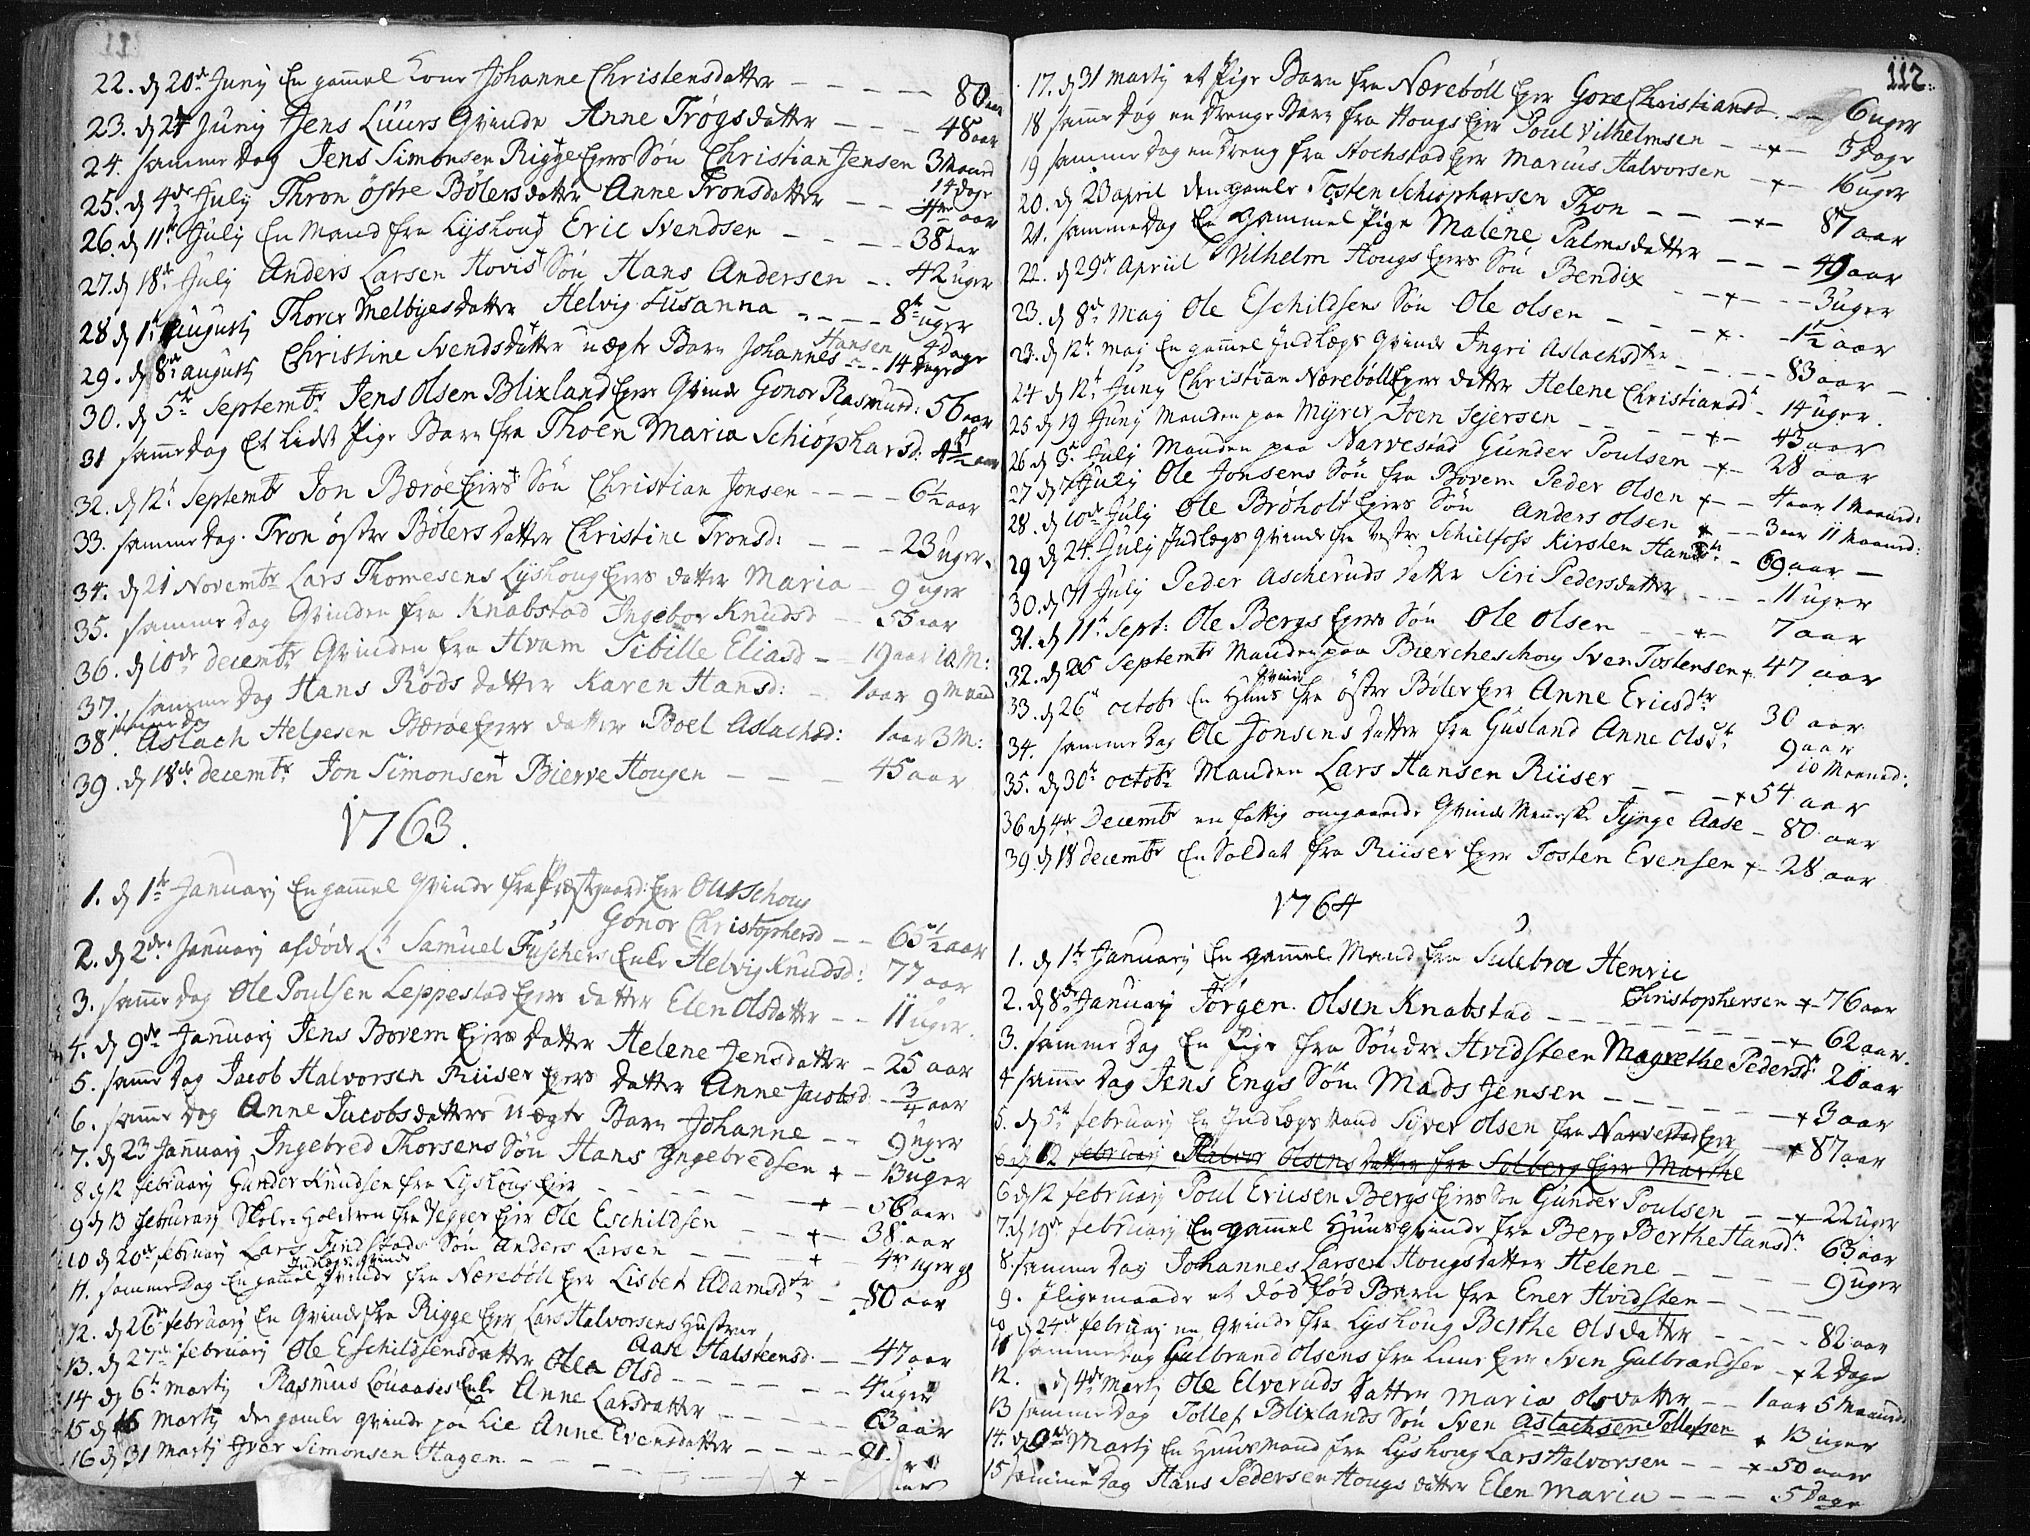 22. d 20de Junij En gammel Kone Johanne Christensdatter - - - - - 80 aar
23. d 24 Junij Jens Luurs Qvinde Anne Trøgsdatter - - - - 48 aar
24. samme Dag Jens Simonsen Rigge Ejers Søn Christian Jensen 3 Maaned 14 dage
25. d 4de Julij Thron østre Bølers datter Anne Tronsdatter - - aar
26. d 11te Julij En Mand fra Lyshoug Eric Svendsen - - - - 38 aar
27. d 18de Julij Anders Larsen Hovis Søn Hans Andersen - . 42 uger
28 d 1te Augustj Thorer Melbyes datter Helvig Susanna - - - - 8te uger 4 dage
29. d 8de augustj Christine Svendsdatter uægte Barn Johannes Hansen - - 14 dage
30. d 5te Septembr Jens Olsen Blixland Ejers Qvinde Gonor Rasmusd: 56 aar
31 samme Dag Et lidet Pige Barn fra Thoen Maria Schiøpharsd: 4½ aar
32. d 12te Septembr Jon Bærøe Ejers Søn Christian Jonsen - - - - 6½ aar
33. samme Dag. Tron østre Bølers Datter Christine Tronsd: - - - - 23 uger.
34. d 21 Novembr Lars Thomesens Lyshoug Ejers datter Maria - 9 uger
35. samme Dag Qvinden fra Knabstad Ingebor Knudsd - - 55 aar
36. d 10de decembr Qvinden fra Hvam Sibille Eliasd - - 19 aar 10 M:
37. samme Dag Hans Røds datter Karen Hansd: - 1 aar 9 Maaned
38. samme Dag Aslach Helgesen Bærøe Ejers datter Boel Aslachsd: 1 aar 3 M:
39. d 18de decembr Jon Simonsen Bierve Hougen - - - 45 aar
1763.
1. d 1te Januarij En gammel Qvinde fra Præstgaard: Ejer Oluschoug
Gonor Christophersd - - 65½ aar
2. d 2den Januarij afdøde Lt Samuel Fuschers Enke Helvig Knudsd: 77 aar
3. samme dag Ole Poulsen Leppestad Ejers datter Elen Olsdatter - - 11 uger.
4. d 9de Januarij Jens Borem Ejers Datter Helene Jensdatter - 25 aar
5. samme Dag Jacob Halvorsen Riiser Ejers Datter Anne Jacobsd - ¾ aar
6. samme Dag Anne Jacobsdatters uægte Barn Johanne - - 9 uger
7. d 23 Januarij Ingebred Thorsens Søn Hans Ingebredsen + - 13 uger
8 d 12 februarij Gunder Knudsen fra Lyshoug Ejer - - - - + - 56 aar
9 d 13 februarij Skole-Holderen fra Vegger Ejer Ole Eschildsen - - + - 38 aar
10 d 20de februarij Lars Findstads Søn Anders Larsen - - - + - 4re uger
11. samme Dag En gammel Indlægs Qvinde fra Nærebøll Ejer Lisbet Adamsdtr - - 80 aar
12. d 26de februarij En Qvinde fra Rigge Ejer Lars Halvorsens Hustrue
Aase Halsteensd - - 47 aar
13. d 27de februarij Ole Eschildsens datter Olea Olsd - - - - - 4 uger
14 d 6te Martij Rasmus Enke Anne Larsdatter - - - - - 63 aar
15 d 16 Martij den gamle Qvinde paa Lie Anne Evensdatter - - - - 91.
16 d 31 Martij Iver Simonsen Hagen - - - - - + - aar
112.
17. d 31 Martij et Pige Barn fra Nærebøll Ejer Gore Christiansd. - - 6 uger
18 samme Dag en Drenge Barn fra Hougs Ejer Poul Vilhelmsen - + - 5 Dage
19 samme dag en Dreng fra Hochstad Ejer Marius Halvorsen - + - 16 uger
20. d 23 april den gamle Tosten Schiøpharsen Thon - - - + - 87 aar
21. samme dag En gammel Pige Malene Palmsdatter - - - 49 aar
22. d 29de April Vilhelm Hougs Ejers Søn Bendix - - + - - - 3 uger
23. d 8de Maj Ole Eschildsens Søn Ole olsen - - - + - 1½ aar
23. d 12te maj En gammel Indlægs Qvinde Ingri Aslachsdtr - - - - 83 aar -
24 d 12te Junij Christian Nærebøll Ejers datter Helene Christiansdr - 14 uger.
25 d 19 Junij Manden paa Myrer Joen Sejersen - - - - + - 43 aar
26 d 3de Julij Manden paa Narvestad Gunder Poulsen - + - 28 aar
27 d 7 Julij Ole Jonsens Søn fra Bovem Peder Olsen + - 4 aar 1 Maaned:
28. d 10de Julij Ole Brøholt Ejers Søn Anders olsen + - - 3 aar 11 Maaned:
29 d 24. Julij Indlægs Qvinde fra Vestre Schielfoss Kirsten Hansdtr - 69 aar -
30. d 31 Julij Peder Ascheruds Datter Siri Pedersdatter - - - 11 uger
31. d 11te Sept: Ole Bergs Ejers Søn Ole Olsen - - + - 7 aar
32. d 25 Septembr Manden paa Biercheschoug Sven Tostensen + 47 aar
33. d 26de octobr En Huus Qvinde fra østre Bøler Ejer Anne Ericsdtr 30 aar
34. samme Dag Ole Jonsens datter fra Gusland Anne Olsdtr 9 aar 10 Maaned:
35. d 30te octobr Manden Lars Hansen Riiser - - - + 54 aar
36 d 4de Decembr en fattig omgaaende Qvinde Menneske Synge Aase - 80 aar
39. d 18 decembr En Soldat fra Riiser Ejer Tosten Evensen + - 28 aar
1764
1. d 1te Januarij En gammel Mand fra Sulebroe Henric
Christophersen + - 76 aar
2. d 8de Januarij Jørgen Olsen Knabstad - - - - - + - 62 aar.
3. samme Dag En Pige fra Søndre Hvidsteen Magrethe Pedersdr 20 aar
4 samme Dag Jens Engs Søn Mads Jensen - - - - - + 3 aar
5. d 5te februarij En Indlægs Mand Syver Olsen fra Narvestad Ejer - + 87 aar
6 d 12 februarij Halvor Olsens datter fra Solberg Ejer Marthe
6 d 12 februarij Poul Ericsen Bergs Ejers Søn Gunder Poulsen - - + - 22 uger
7. d 19de februarij En gammel Huus Qvinde fra Berg Berthe Hansdr. 63 aar
8. samme Dag Johannes Larsen Hougs datter Helene - - - - 9 uger
9. Iligemaade et død fød Barn fra Ener Hvidsten - - - -
10 d 24de februarij en Qvinde fra Lyshoug Berthe Olsdatter - - - - 82 aar
11 samme Dag Gulbrand Olsens fra Luur Ejer Sven Gulbrandsen - + 2 Dage
12. d 4de Martij Ole Elveruds Datter Maria Olsdatter - - 1 aar 5 Maaned:
13 samme Dag Tollef Blixlands Søn Sven Aslachsen Tollefsen + 13 uger
14. d Martij En Huusmand fra Lyshoug Lars Halvorsen - - + - 50 aar
15 samme Dag Hans Pedersen Hougs datter Elen Maria - - - 5 Dage